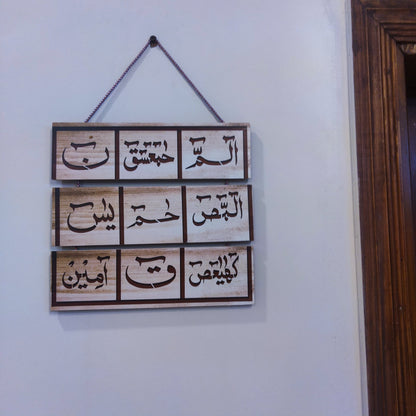 الٓمّٓ حٰمٓعٓسٓقٓ نٓ
الٓمّٓصٓ حٰمٓ يٰسٓ
كٓهٰيٰعٓصٓ قٓ آمِيْن